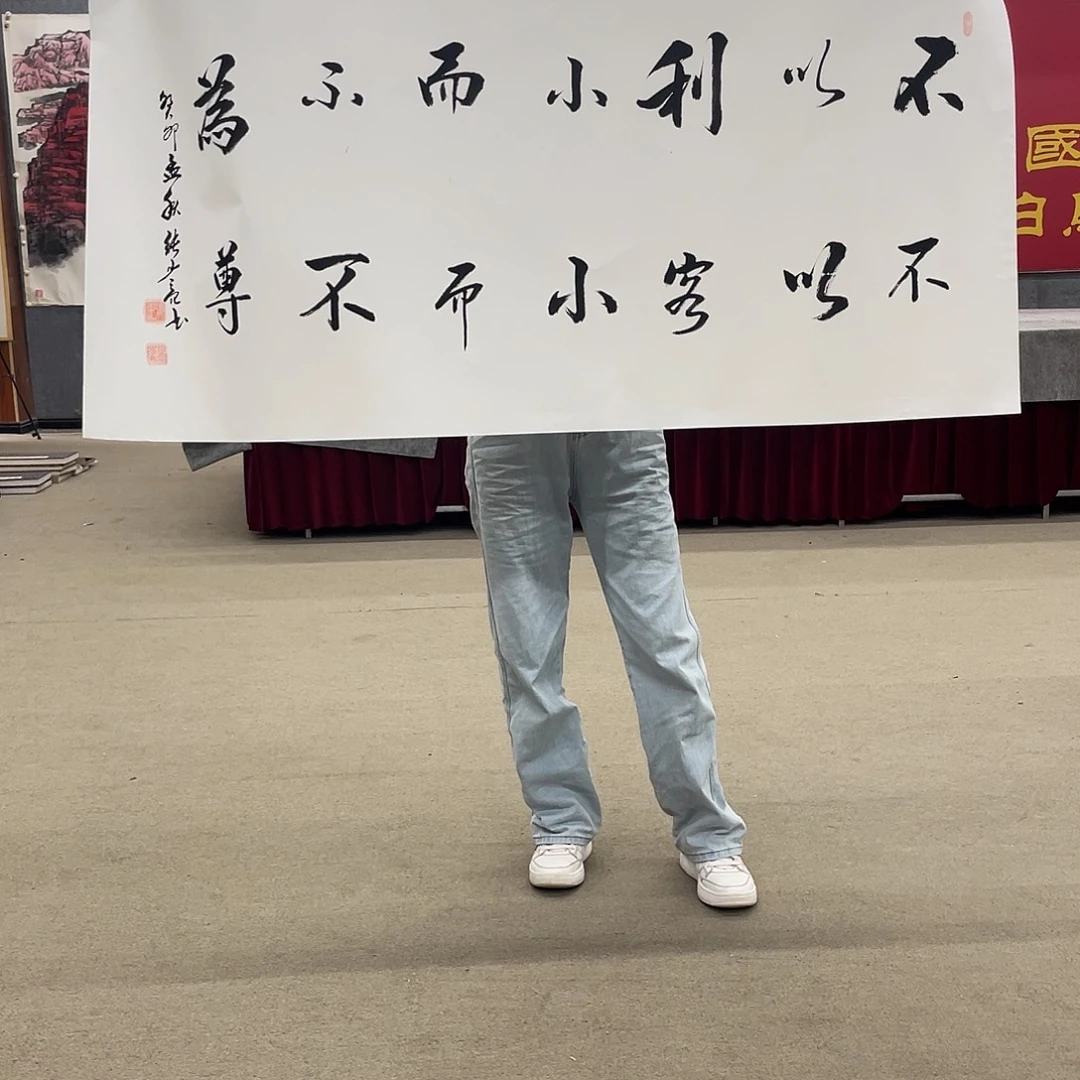 不以利小而不為
不以客小而不尊
癸卯孟秋
國
白